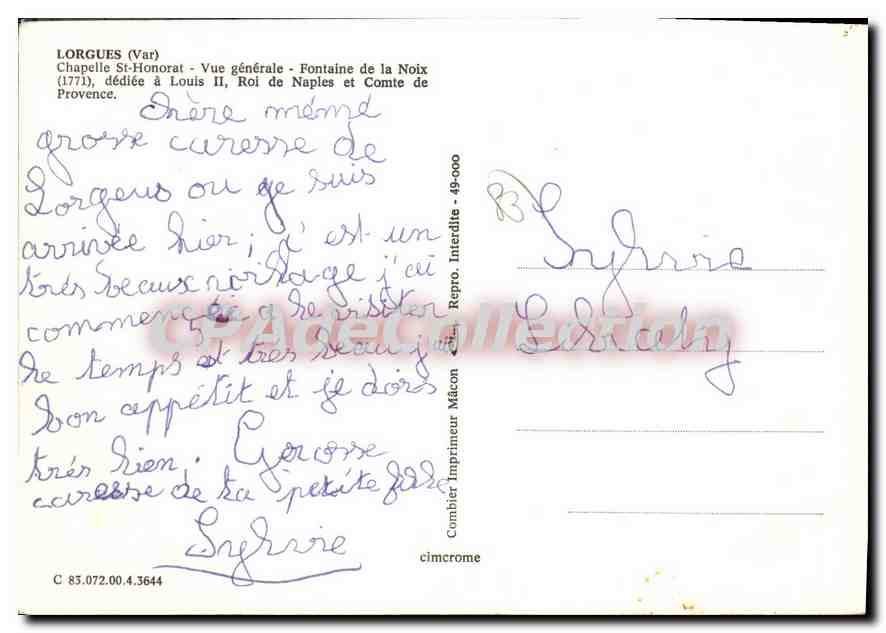 LORGUES (Var)
Chapelle St-Honorat - Vue générale - Fontaine de la Noix
(1771), dédiée à Louis II, Roi de Naples et Comte de
Provence.
chère mémé
grosse caresse de
Lorgeus ou je suis
arrivée hier, c'est un
trés beaux j'ai
commencée a le visiter
le temps est très beau j'ai
bon appétit et je dors
trés bien. Gorosse
caresse de ta petite fille
Sylvie
C 83.072.00.4.3644
cimcrome
Combier Imprimeur Mâcon Repro. Interdite - 49-000
83
Sylvie
CPAdeCollection